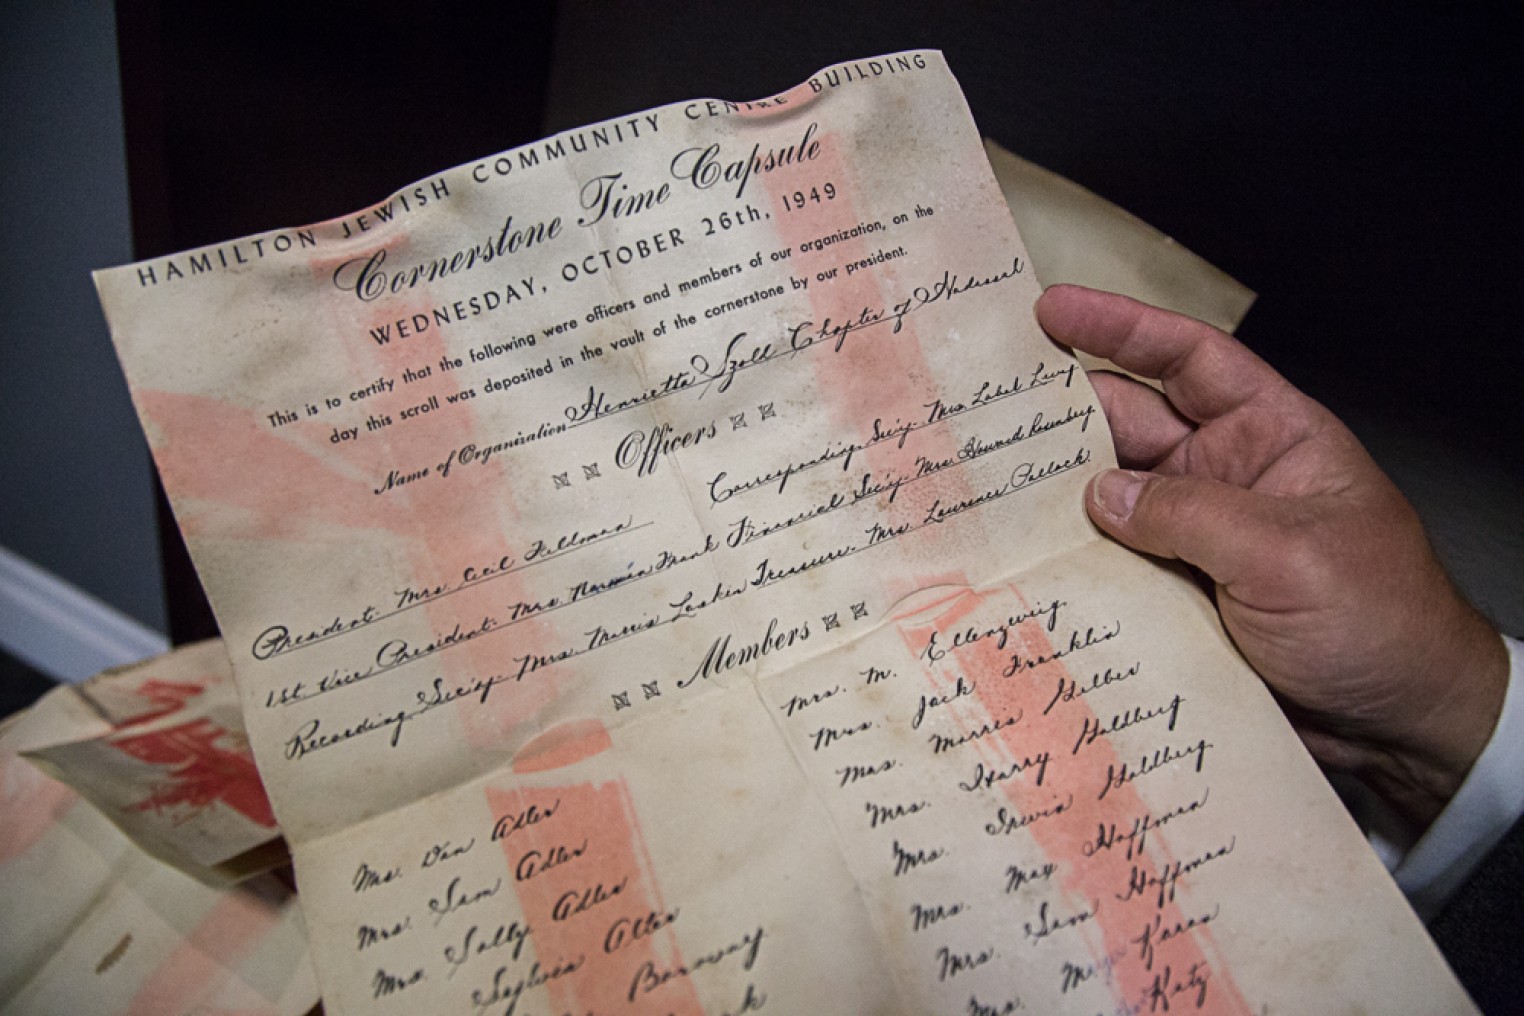 HAMILTON JEWISH COMMUNITY CENTRE BUILDING
Cornerstone Time Capsule
WEDNESDAY, OCTOBER 26th, 1949
This is to certify that the following were officers and members of our organization, on the
day this scroll was deposited in the vault of the cornerstone by our president.
Name of Organization Henrietta Szold Chapter of Hadassah
Officers
President: Mrs Cecil Feldman
1st Vice President: Mrs. Norman Frank
Recording Sec'y. Mrs. Morris Laskin
Corresponding Sec'y. Mrs. Label Levy
Financial Sec'y. Mrs. Howard Rosenberg
Treasure. Mrs. Laurence Pollock.
Members
Mrs. Dan Adler
Mrs. Sam Adler
Mrs. Solly Adler
Sylvia Alter
Borovoy
Mrs. M. Ellenzweig
Mrs. Jack Franklin
Mrs. Morris Gelber
Mrs. Harry Goldberg
Mrs. Irwin Goldberg
Mrs. Max Hoffman
Mrs. Sam Hoffman
Mrs.
Katz